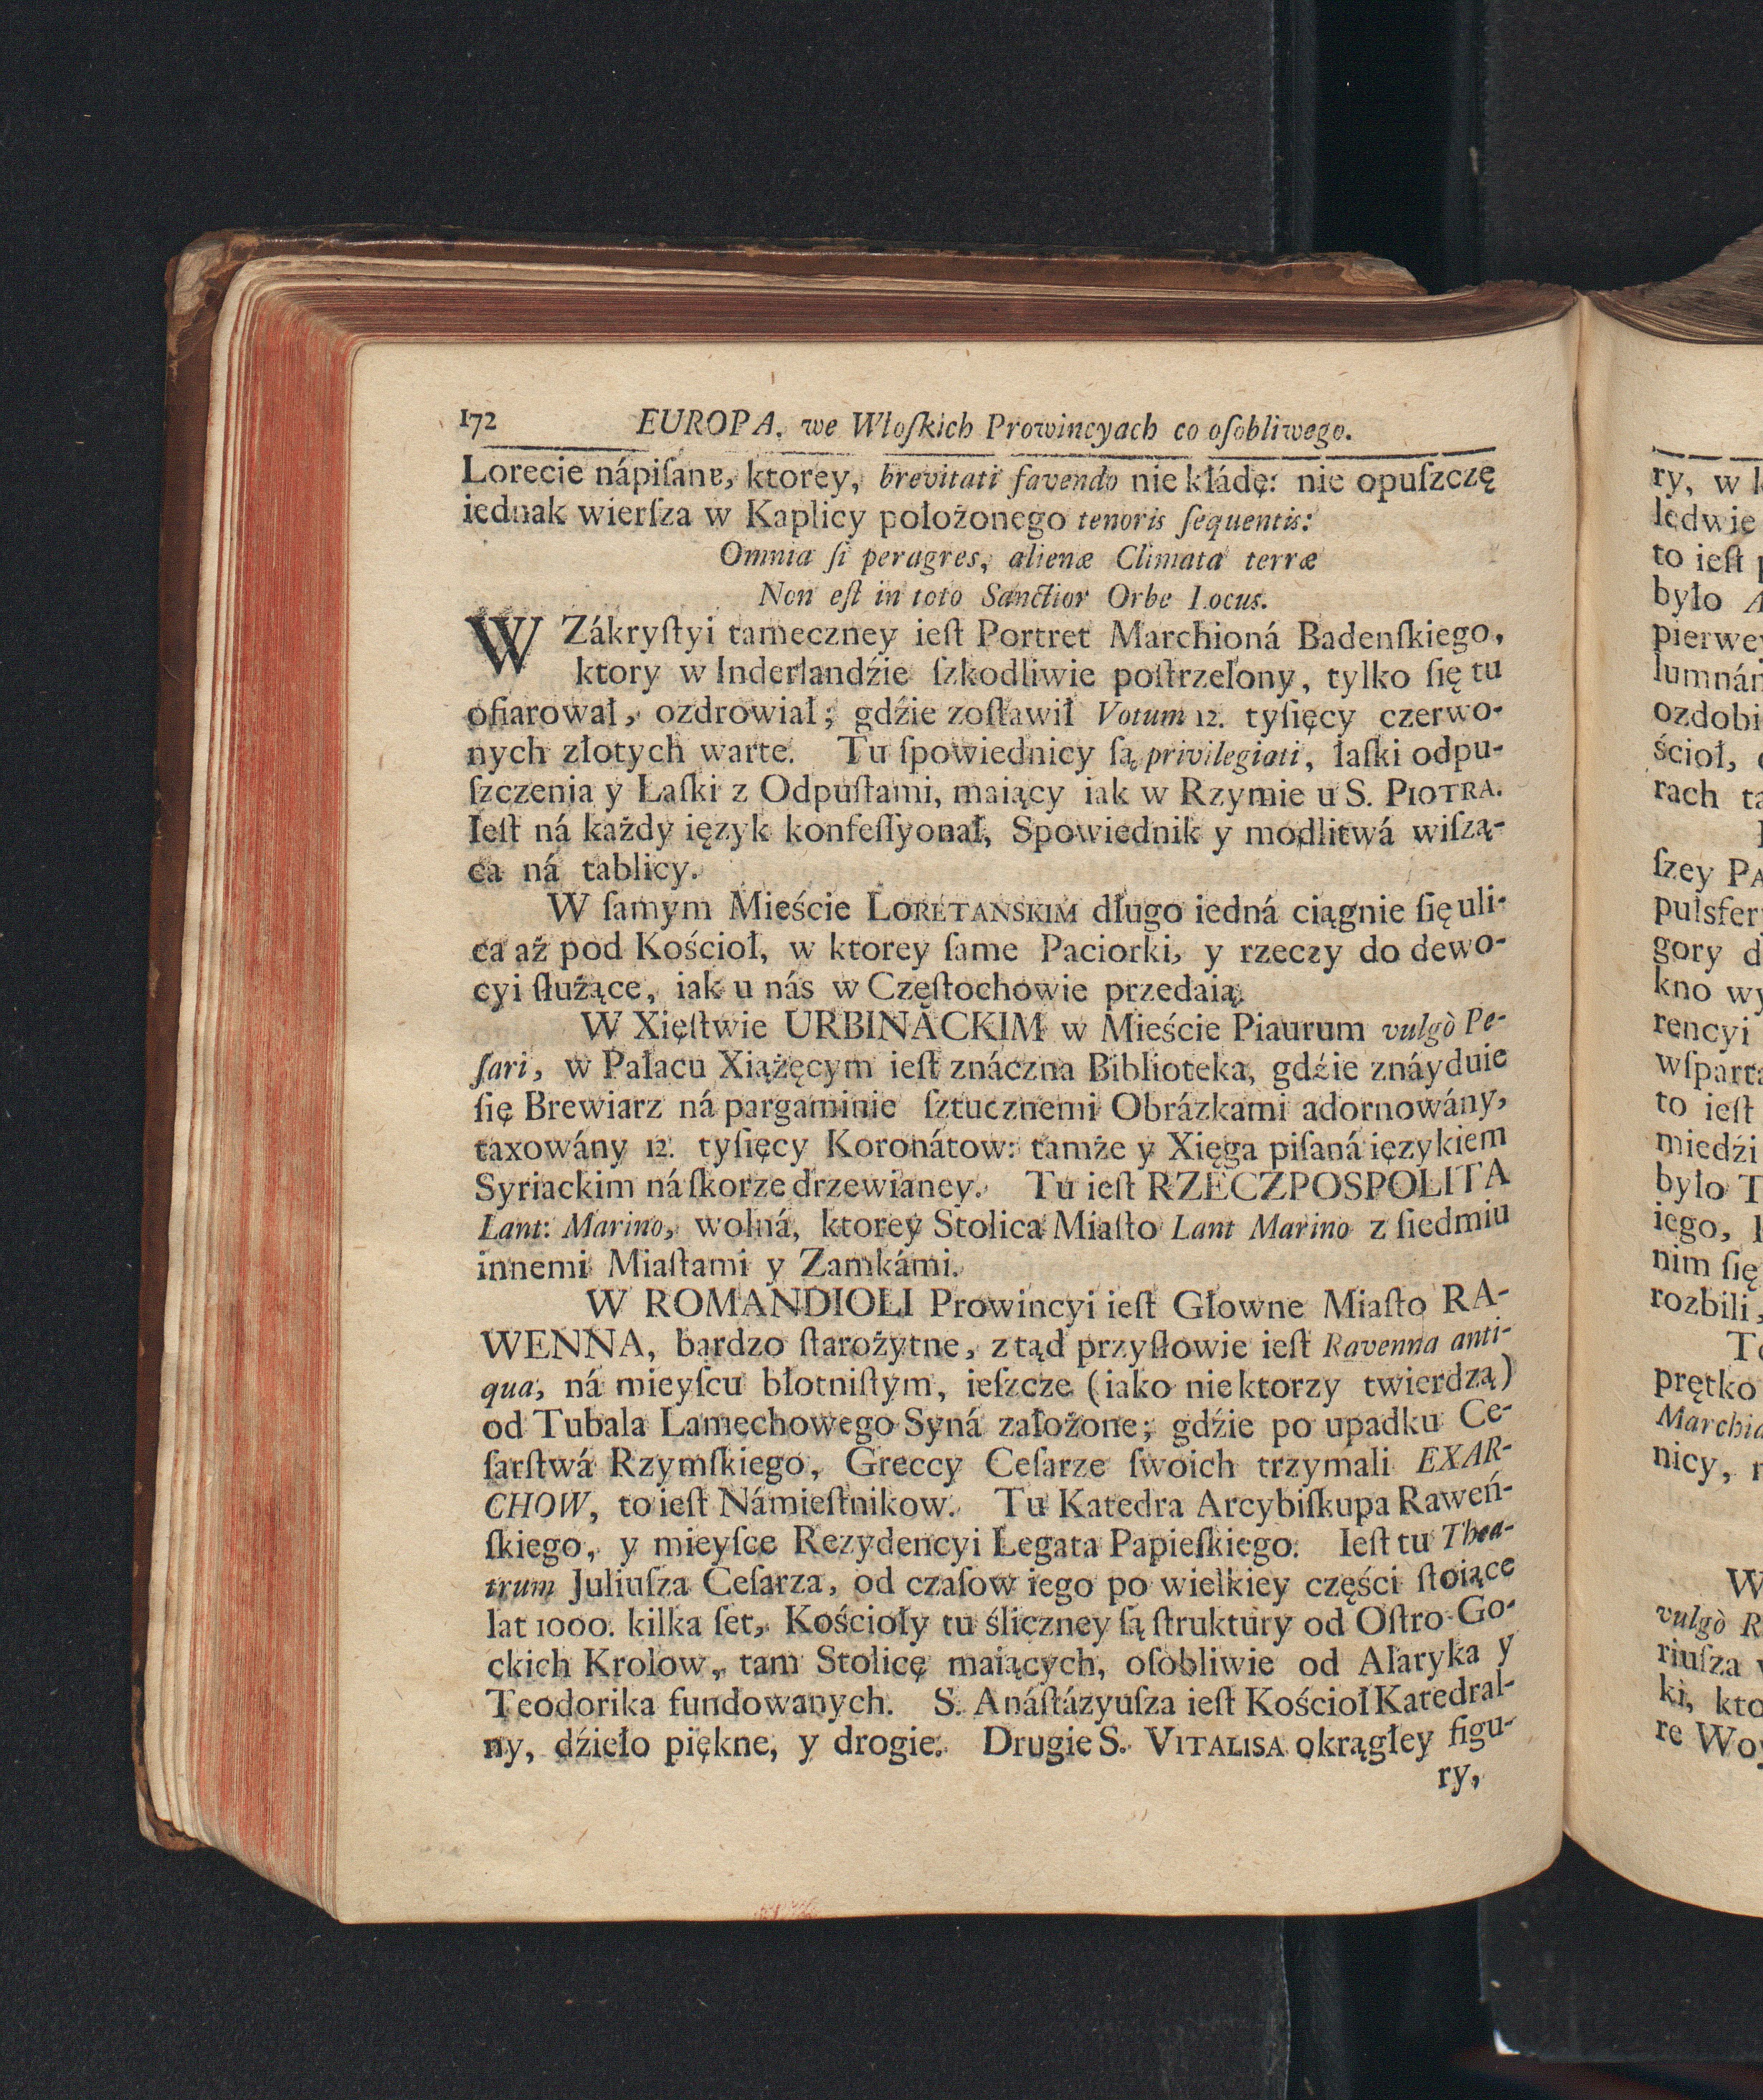 172 EUROPA. we Włoſkich Prowincyach co oſobliwego.
Lorecie nápiſane, ktorey, brevitati favendo nie kłádę: nie opuſzczę
iednak wierſza w Kaplicy położonego tenoris ſequentis:
Omnia ſi peragres, alienæ Climata terræ
Non eſt in toto Sanctior Orbe Locus.
W Zákryſtyi tameczney ieſt Portret Marchioná Badenſkiego,
ktory w Inderlandźie ſzkodliwie poſtrzelony, tylko ſię tu
ofiarował, ozdrowiał; gdźie zoſtawił Votum 12. tyſięcy czerwo-
nych złotych warte. Tu ſpowiednicy ſą privilegiati, łaſki odpu-
ſzczenia y Łaſki z Odpuſtami, maiący iak w Rzymie u S. PIOTRA.
Ieſt ná każdy ięzyk konfeſſyonał, Spowiednik y modlitwá wiſzą-
ca ná tablicy.
W ſamym Mieście LORETANSKIM długo iedná ciągnie ſię uli-
ca aż pod Kościoł, w ktorey ſame Paciorki, y rzeczy do dewo-
cyi ſłużące, iak u nás w Częſtochowie przedaią.
W Xięſtwie URBINACKIM w Mieście Piaurum vulgò Pe-
ſari, w Pałacu Xiążęcym ieſt znáczna Biblioteka, gdźie znáyduie
ſię Brewiarz ná pargaminie ſztucznemi Obrázkami adornowány,
taxowány 12. tyſięcy Koronátow: tamże y Xięga piſaná ięzykiem
Syriackim ná ſkorze drzewianey. Tu ieſt RZECZPOSPOLITA
Lant: Marino, wolná, ktorey Stolica Miaſto Lant Marino z ſiedmiu
innemi Miaſtami y Zamkámi.
W ROMANDIOLI Prowincyi ieſt Głowne Miaſto RA-
WENNA, bardzo ſtarożytne, ztąd przyſłowie ieſt Ravenna anti-
qua, ná mieyſcu błotniſtym, ieſzcze (iako niektorzy twierdzą)
od Tubala Lamechowego Syná założone; gdźie po upadku Ce-
ſarſtwá Rzymſkiego, Greccy Ceſarze ſwoich trzymali EXAR-
CHOW, to ieſt Námieſtnikow. Tu Katedra Arcybiſkupa Raweń-
ſkiego, y mieyſce Rezydencyi Legata Papieſkiego. Ieſt tu Thea-
trum Juliuſza Ceſarza, od czaſow iego po wielkiey części ſtoiące
lat 1000. kilka ſet, Kościoły tu śliczney ſą ſtruktury od Oſtro-Go-
ckich Krolow, tam Stolicę maiących, oſobliwie od Alaryka y
Teodorika fundowanych. S. Anáſtázyuſza ieſt Kościoł Katedral-
ny, dźieło piękne, y drogie. Drugie S. VITALISA okrągłey figu-
ry,
ry, w
ledwie
to ieſt
było
pierwey
ozdobi
ścioł,
rach
ſzey
gory
kno
rencyi
to ieſt
miedźi
było
iego,
nim ſię
rozbili,
prętko
nicy,
W
vulgò
riuſza
re